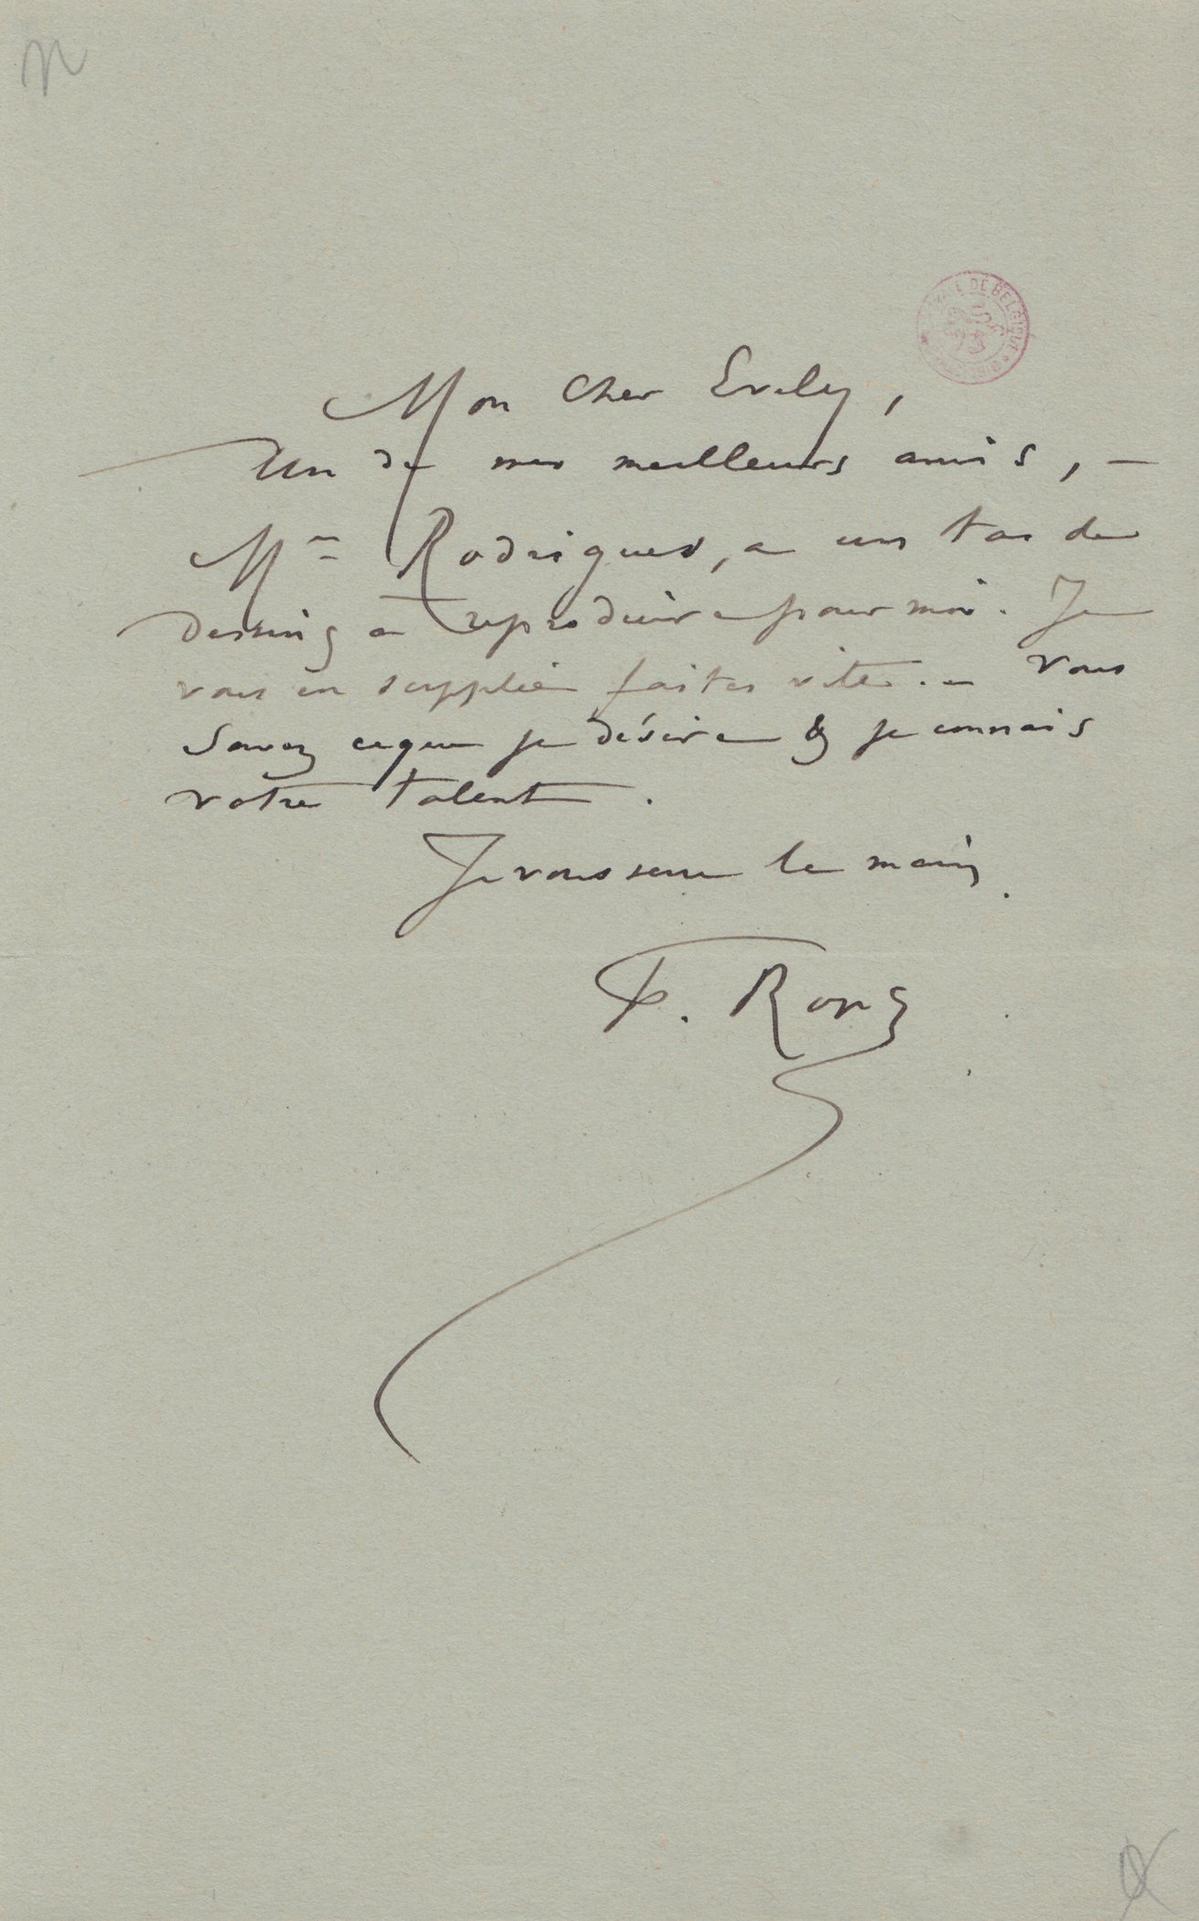 n
Mon Cher Evely,
Un de mes meilleurs amis, –
Mr Rodrigues, a un tas de
dessins a reproduire pour moi. Je
vous en supplie faites vite. – Vous
Savez ce que je désire & je connais
votre talent.
Je vous serre la main.
F. Rops